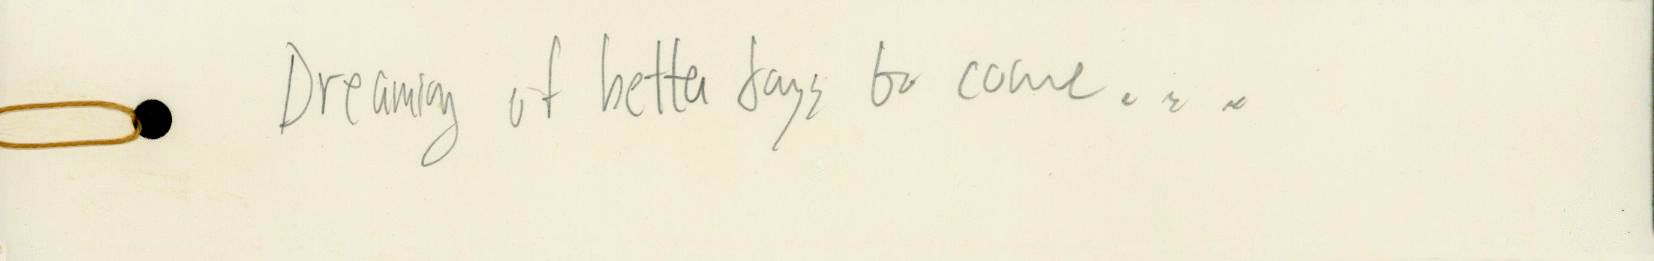 Dreaming of better days to come...